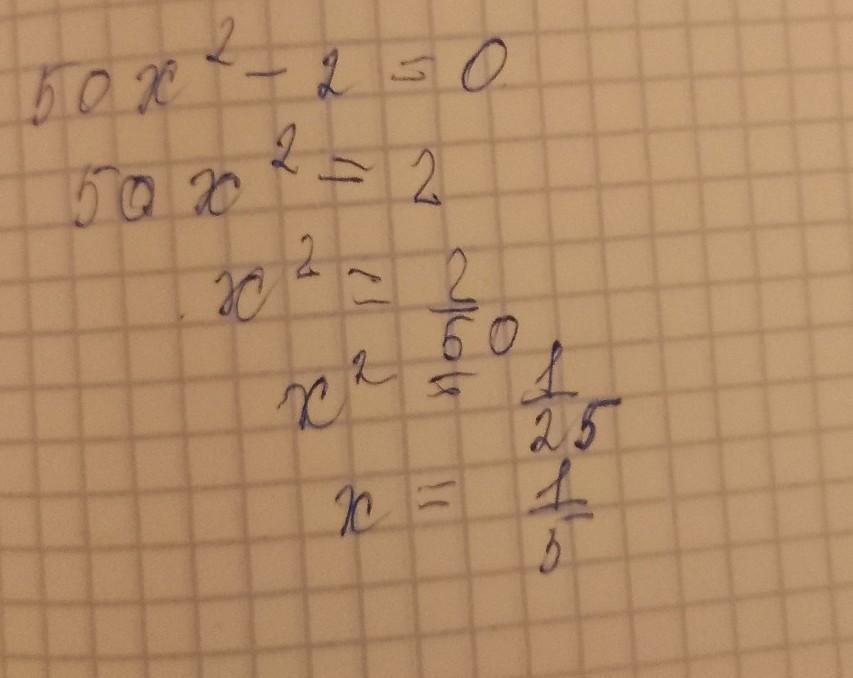 50x² - 2 = 0
50x² = 2
x² = 2/50
x² = 1/25
x = 1/5